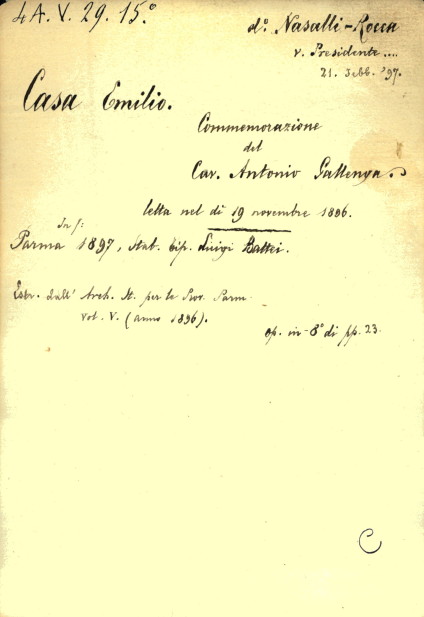 4 A. V. 29. 15.°
d°. Nasalli-Rocca
v. Presidente ....
21. Febb. '97.
Casa Emilio.
Commemorazione
del
Cav. Antonio Gallenga.
letta nel dì 19 novembre 1896.
In f:
Parma 1897, Stab. tip. Luigi Battei.
Estr. dall' Arch. St. per le Prov. Parm.
vol. V. (anno 1896).
op. in-8° di pp. 23.
C